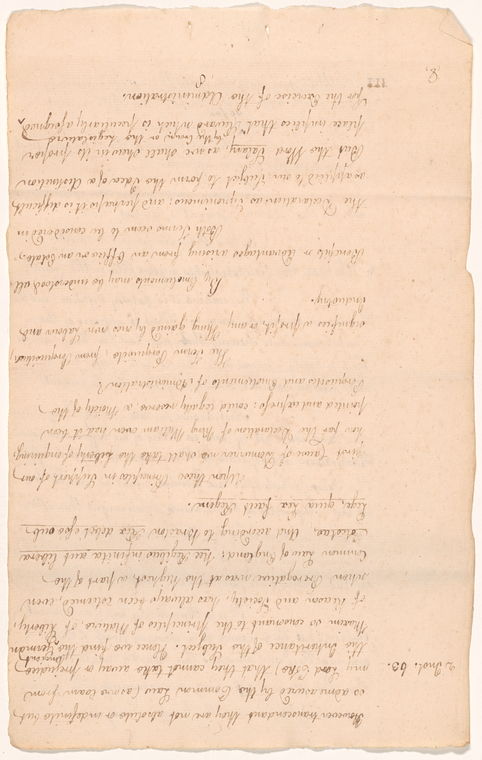 However transcendant they are not absolute or indefinite but
is admeasured by the Common Law (as we learn from
2 Inst. 63.
my Lord Coke) that they cannot take away or prejudice
the Inheritance of the Subject. Hence we find this German
Maxim so consonant to the Principles of Nature, of Liberty,
of Reason and Society, has always been esteemed, even
when Prerogative was at the highest, a part of the
Common Law of England; Nec Regibus infinita aut libera
Potestas, And according to Bracton Rex debet esse sub
Lege, quia Lex facit Regem.
Upon these Principles in Support of our
first Cause of Demurrer we shall take the Liberty of enquiring,
how far the Declaration of King William even had it been
pointed and express; could legally reserve a Moiety of the
Perquisites and Emoluments of Administration?
The Term Perquisite, from Perquisitum,
signifies a profit, or any Thing gained by ones own Labour and
Industry.
By Emoluments may be understood all
Benefits or Advantages arising from an Office or an Estate,
Both Terms seem to be considered in
the Declaration as Synonimous; and perhaps it is difficult
as applied to our Subject to form the Idea of a distinction
But the Word Salary, as we shall shew in its proper
by the Crown, or the Legislature
place implies that Reward which is peculiarly assigned
for the Exercise of the Administration.
8
III